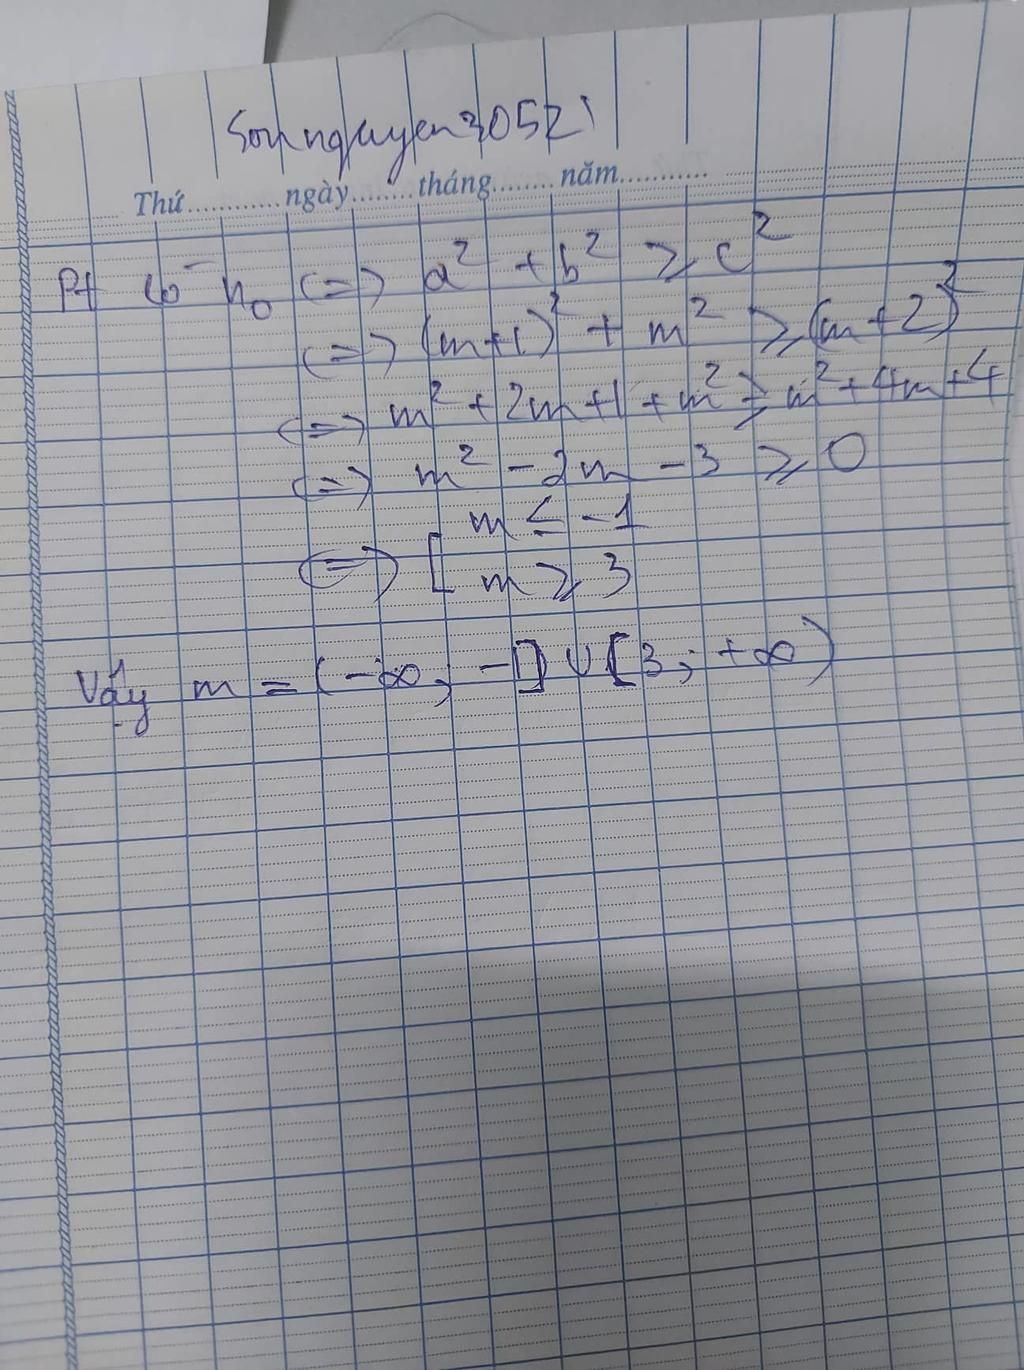 Sonnguyen30521
Thứ............ngày........tháng........năm...........
Pt có n₀ <=> a² + b² ⩾ c²
<=> (m+1)² + m² ⩾ (m+2)²
<=> m² + 2m+1 + m² ⩾ m² + 4m + 4
<=> m² - 2m - 3 ⩾ 0
<=> [ m ≤ -1
m ⩾ 3
Vậy m = (-∞; -1] ∪ [3; +∞)